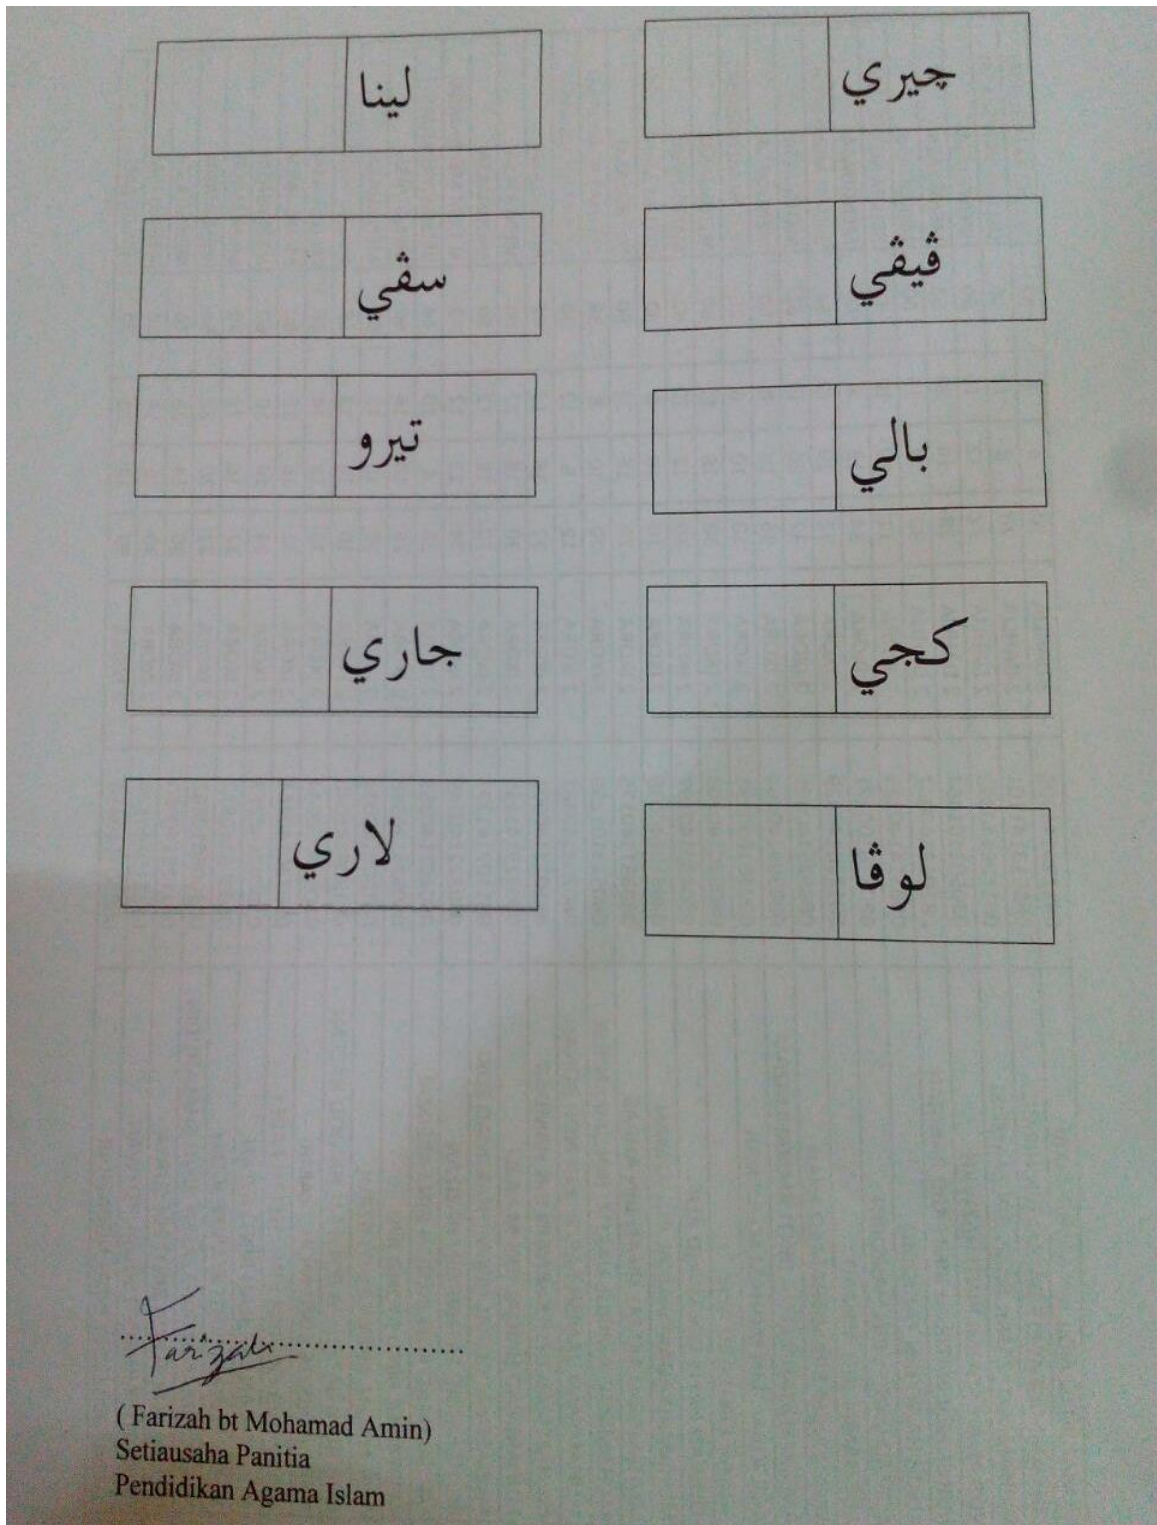 چيري
لينا
ڤيڤي
سڤي
بالي
تيرو
کجي
جاري
لوڤا
لاري
Farizah
( Farizah bt Mohamad Amin)
Setiausaha Panitia
Pendidikan Agama Islam